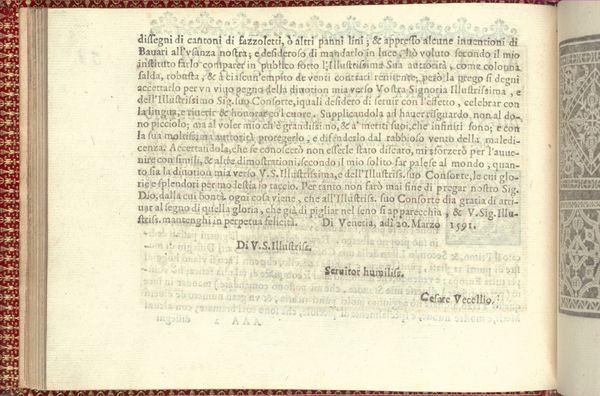 dissegni di cantoni di fazzoletti, ò altri panni lini; & appresso alcune inuentioni di
Bauari all'vsanza nostra; e desideroso di mandarlo in luce, hò voluto secondo il mio
instituto farlo comparer in publico sotto l'Illustrissima Sua autorità, come colonna
salda, robusta, & à ciascun'empito de venti contrari renitente, però la prego si degni
accettarlo per vn viuo pegno della diuotion mia verso Vostra Signoria Illustrissima, e
dell'Illustrissimo Sig. suo Consorte, iquali desidero di seruir con l'effetto, celebrar con
la lingua, e riuerir & honorar co'l cuore. Supplicandola ad hauer risguardo non al do-
no picciolo; ma al voler mio ch'è grandissimo, & a' meriti suoi, che infiniti sono; e con
la sua moltissima autorità protegerlo, e difenderlo dal rabbioso vento della maledi-
cenza. Accertandola, che se conoscerò non esserle stato discaro, mi sforzerò per l'auue-
nire con simili, & altre dimostrationi, secondo il mio solito far palese al mondo, quan-
to sia la diuotion mia verso V.S. Illustrissima, e dell'Illustriss. suo Consorte, le cui glo-
rie e splendori per modestia io taccio. Per tanto non farò mai fine di pregar nostro Sig.
Dio, dalla cui bontà ogni cosa viene, che all'Illustriss. suo Consorte dia gratia di arri-
uar al segno di quella gloria, che già di pigliar nel seno si apparecchia, & V. Sig. Illu-
striss. mantenghi in perpetua felicità. Di Venetia, adì 20. Marzo 1591.
Di V.S. Illustriss.
Seruitor humiliss.
Cesare Vecellio.